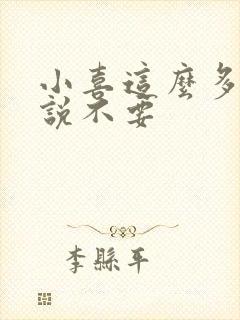 小喜這麼多
說不要
李縣平